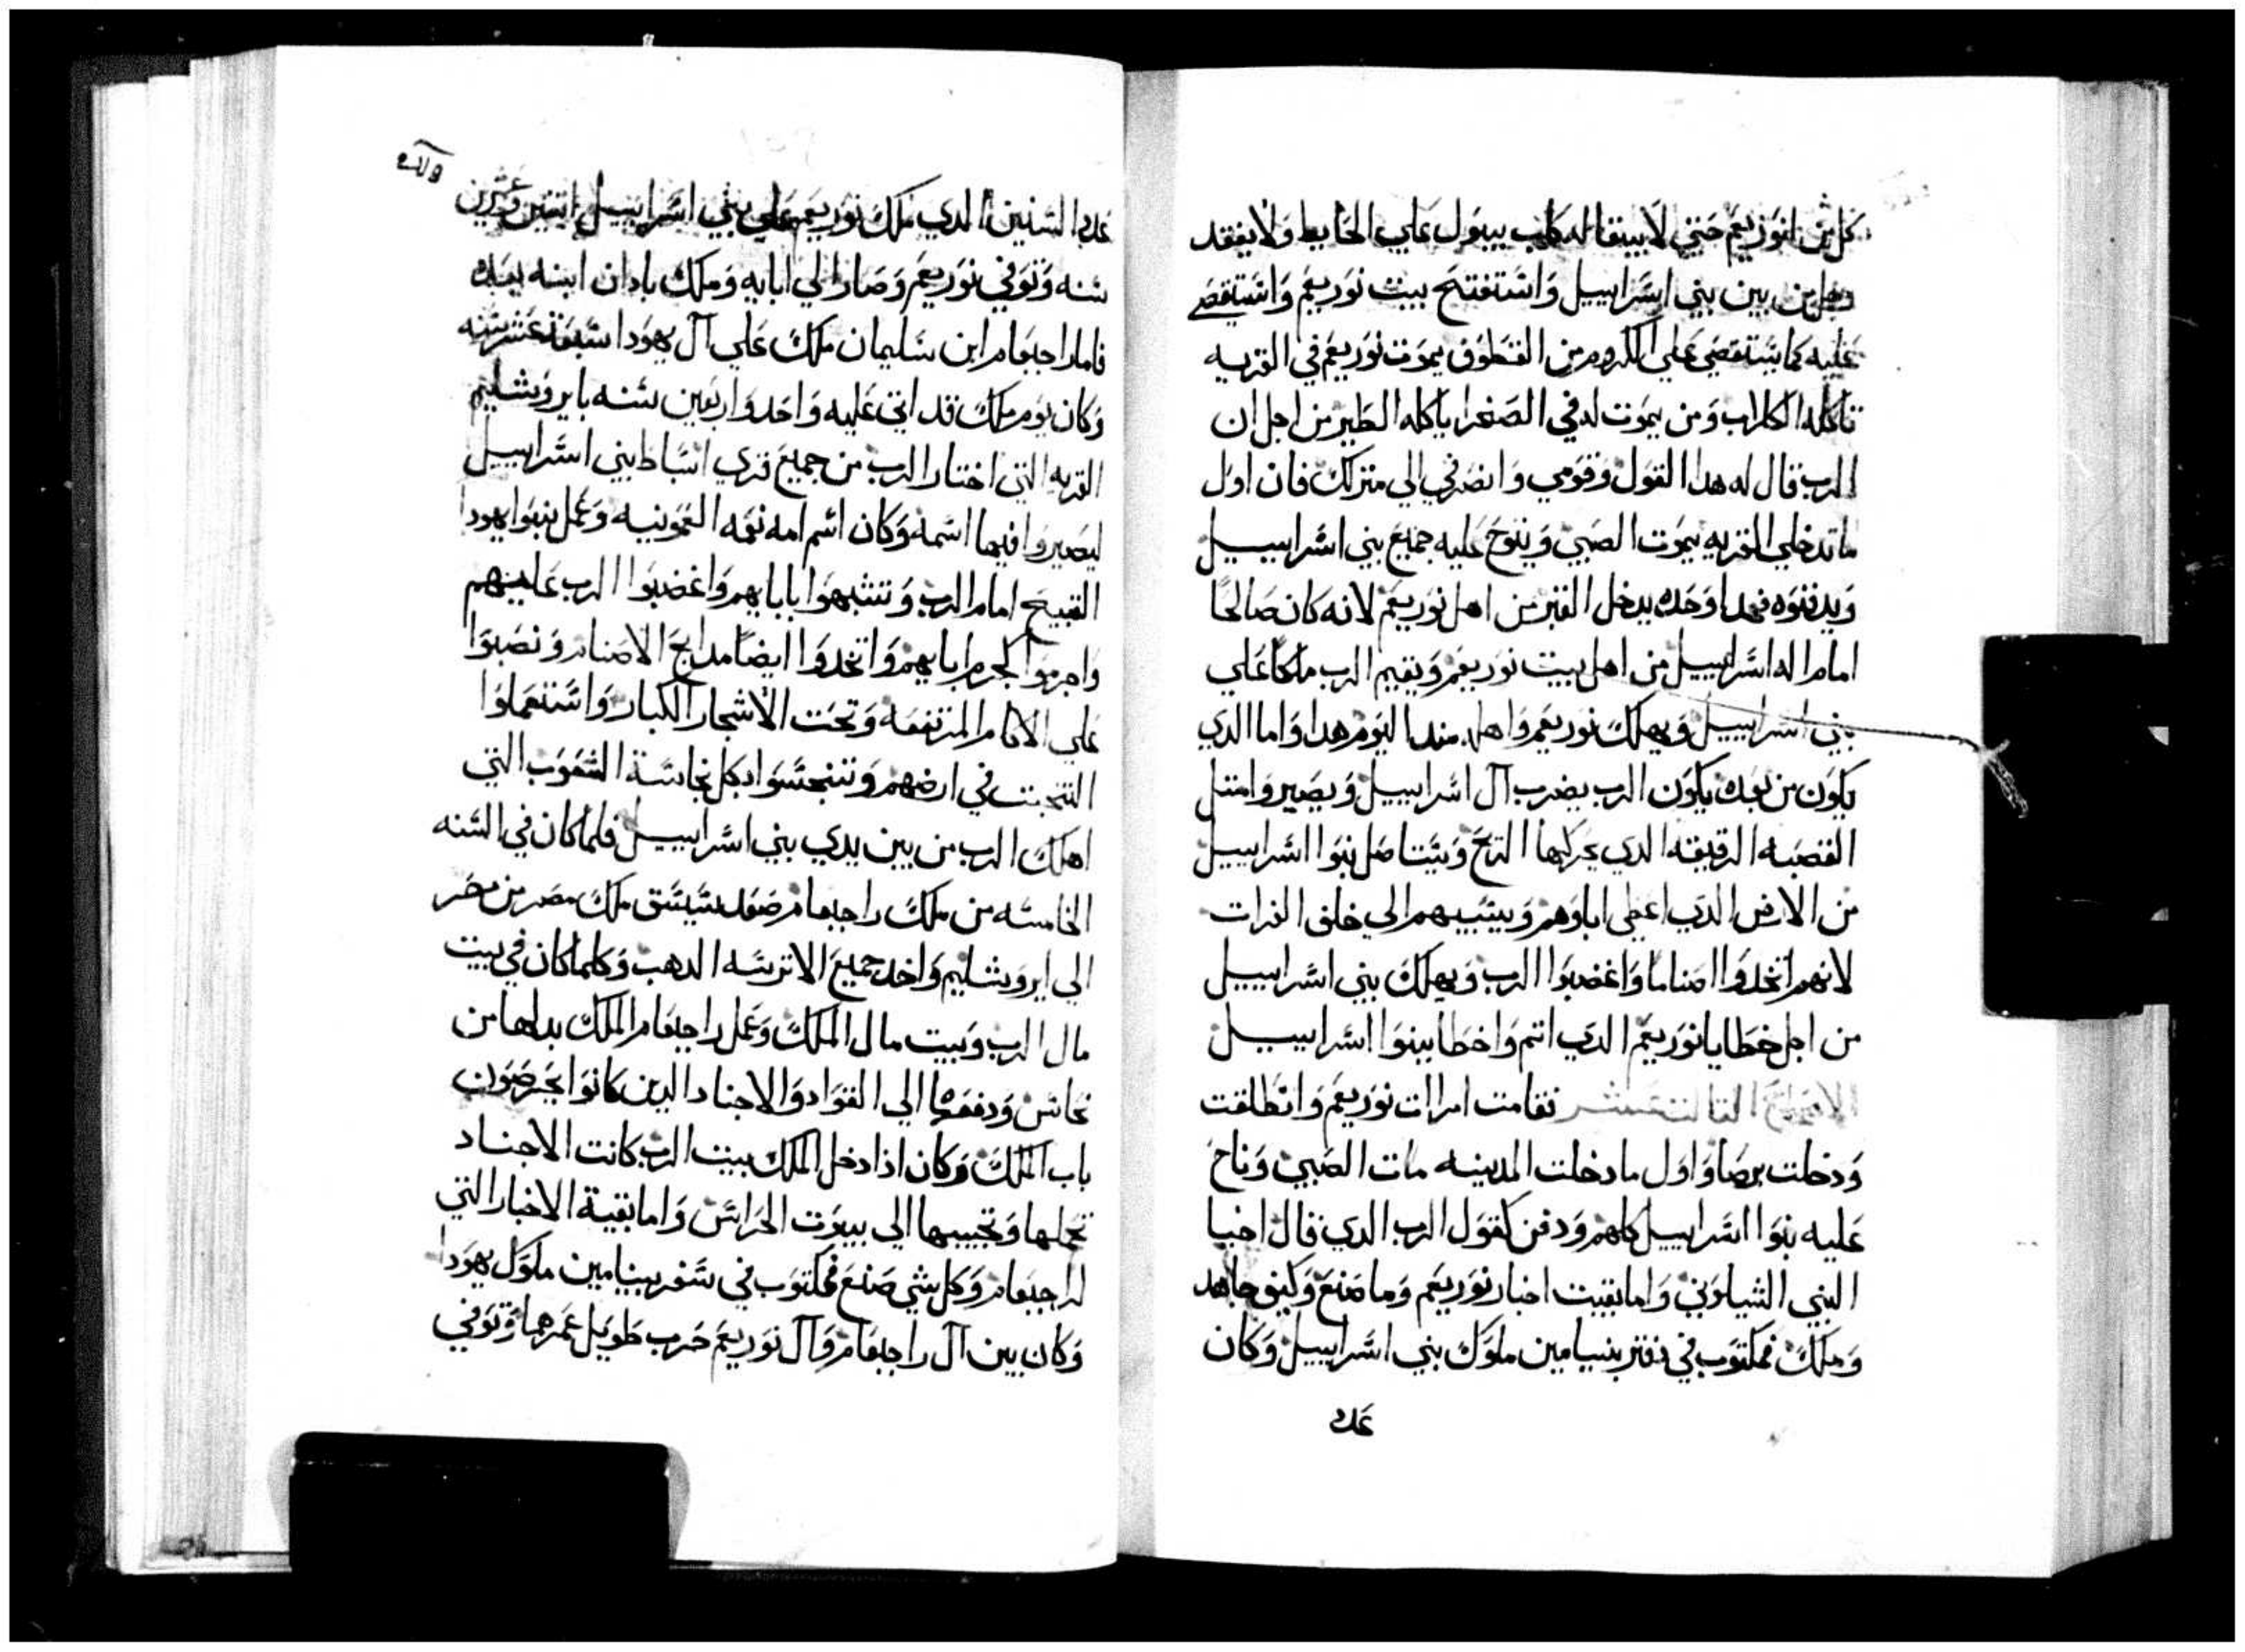 كل من نوريعم حتي لا يبقا له كلب يبول علي الحايط ولا يفقد
من بين بني اسراييل واستفتح بيت نوريعم واستقصي
عليه كما يستقصي علي الكروم من القطوف يموت نوريعم في القريه
تاكله الكلاب ومن يموت له في الصحرا ياكله الطير من اجل ان
الرب قال له هدا القول وقومي وانصرفي الي منزلك فان اول
ما تدخلي القريه يموت الصبي وينوح عليه جميع بني اسراييل
ويدفنوه فهدا وحده يدخل القبر من اهل نوريعم لانه كان صالحا
امام اله اسراييل من اهل بيت نوريعم ويقيم الرب ملكا علي
بني اسراييل ويهلك نوريعم واهله مند اليوم هدا واما الدي
يكون من بعده يكون الرب يضرب آل اسراييل ويصيروا متل
القصبه الرقيقه الدي يحركها الريح ويستاصل بنوا اسراييل
من الارض الدي اعطي اباوهم ويسبيهم الي خلف الفرات
لانهم اتخدوا اصناما واغضبوا الرب ويهلك بني اسراييل
من اجل خطايا نوريعم الدي اتم واخطا بنوا اسراييل
فقامت امرات نوريعم وانطلقت
ودخلت برصا واول ما دخلت المدينه مات الصبي وناح
عليه بنوا اسراييل كلهم ودفن كقول الرب الدي قال اخيا
النبي الشيلوني واما بقيت اخبار نوريعم وما صنع وكيف جاهد
وملك فمكتوب في دفتر بنيامين ملوك بني اسراييل وكان
عدد
عدد السنين الدي ملك نوريعم علي بني اسراييل اتنين وعشرين
سنه وتوفي نوريعم وصار الي ابايه وملك بادان ابنه بعده
فاما راجبعام ابن سليمان ملك علي آل يهودا سبعة عشر سنه
وكان يوم ملك قد اتي عليه واحد واربعين سنه بايروشليم
القريه التي اختار الرب من جميع قري اسباط بني اسراييل
ليصيروا فيها اسمه وكان اسم امه نعمه العمونيه وعمل بنوا يهودا
القبيح امام الرب وتشبهوا باباءيهم واغضبوا الرب عليهم
واجرموا كجرم ابايهم واتخدوا ايضا مدابح الاصنام ونصبوا
علي الاكام المرتفعه وتحت الاشجار الكبار واستعملوا
في ارضهم وتنجسوا بكل نجاسة الشعوب التي
اهلك الرب من بين يدي بني اسراييل فلما كان في السنه
الخامسه من ملك راجبعام صعد شيشق ملك مصر من مصر
الي ايروشليم واخد جميع الاترسه الدهب وكلما كان في بيت
مال الرب وبيت مال الملك وعمل راجبعام الملك بدلها من
نحاس ودفعها الي القواد والاجناد الدين كانوا يحرصون
باب الملك وكان اذا دخل الملك بيت الرب كانت الاجناد
تحملها وتجيبها الي بيوت الحراس واما بقية الاخبار التي
لراجبعام وكل شي صنع فمكتوب في سفر بينامين ملوك يهودا
وكان بين آل راجبعام وآل نوريعم حرب طويل عمرهما وتوفي